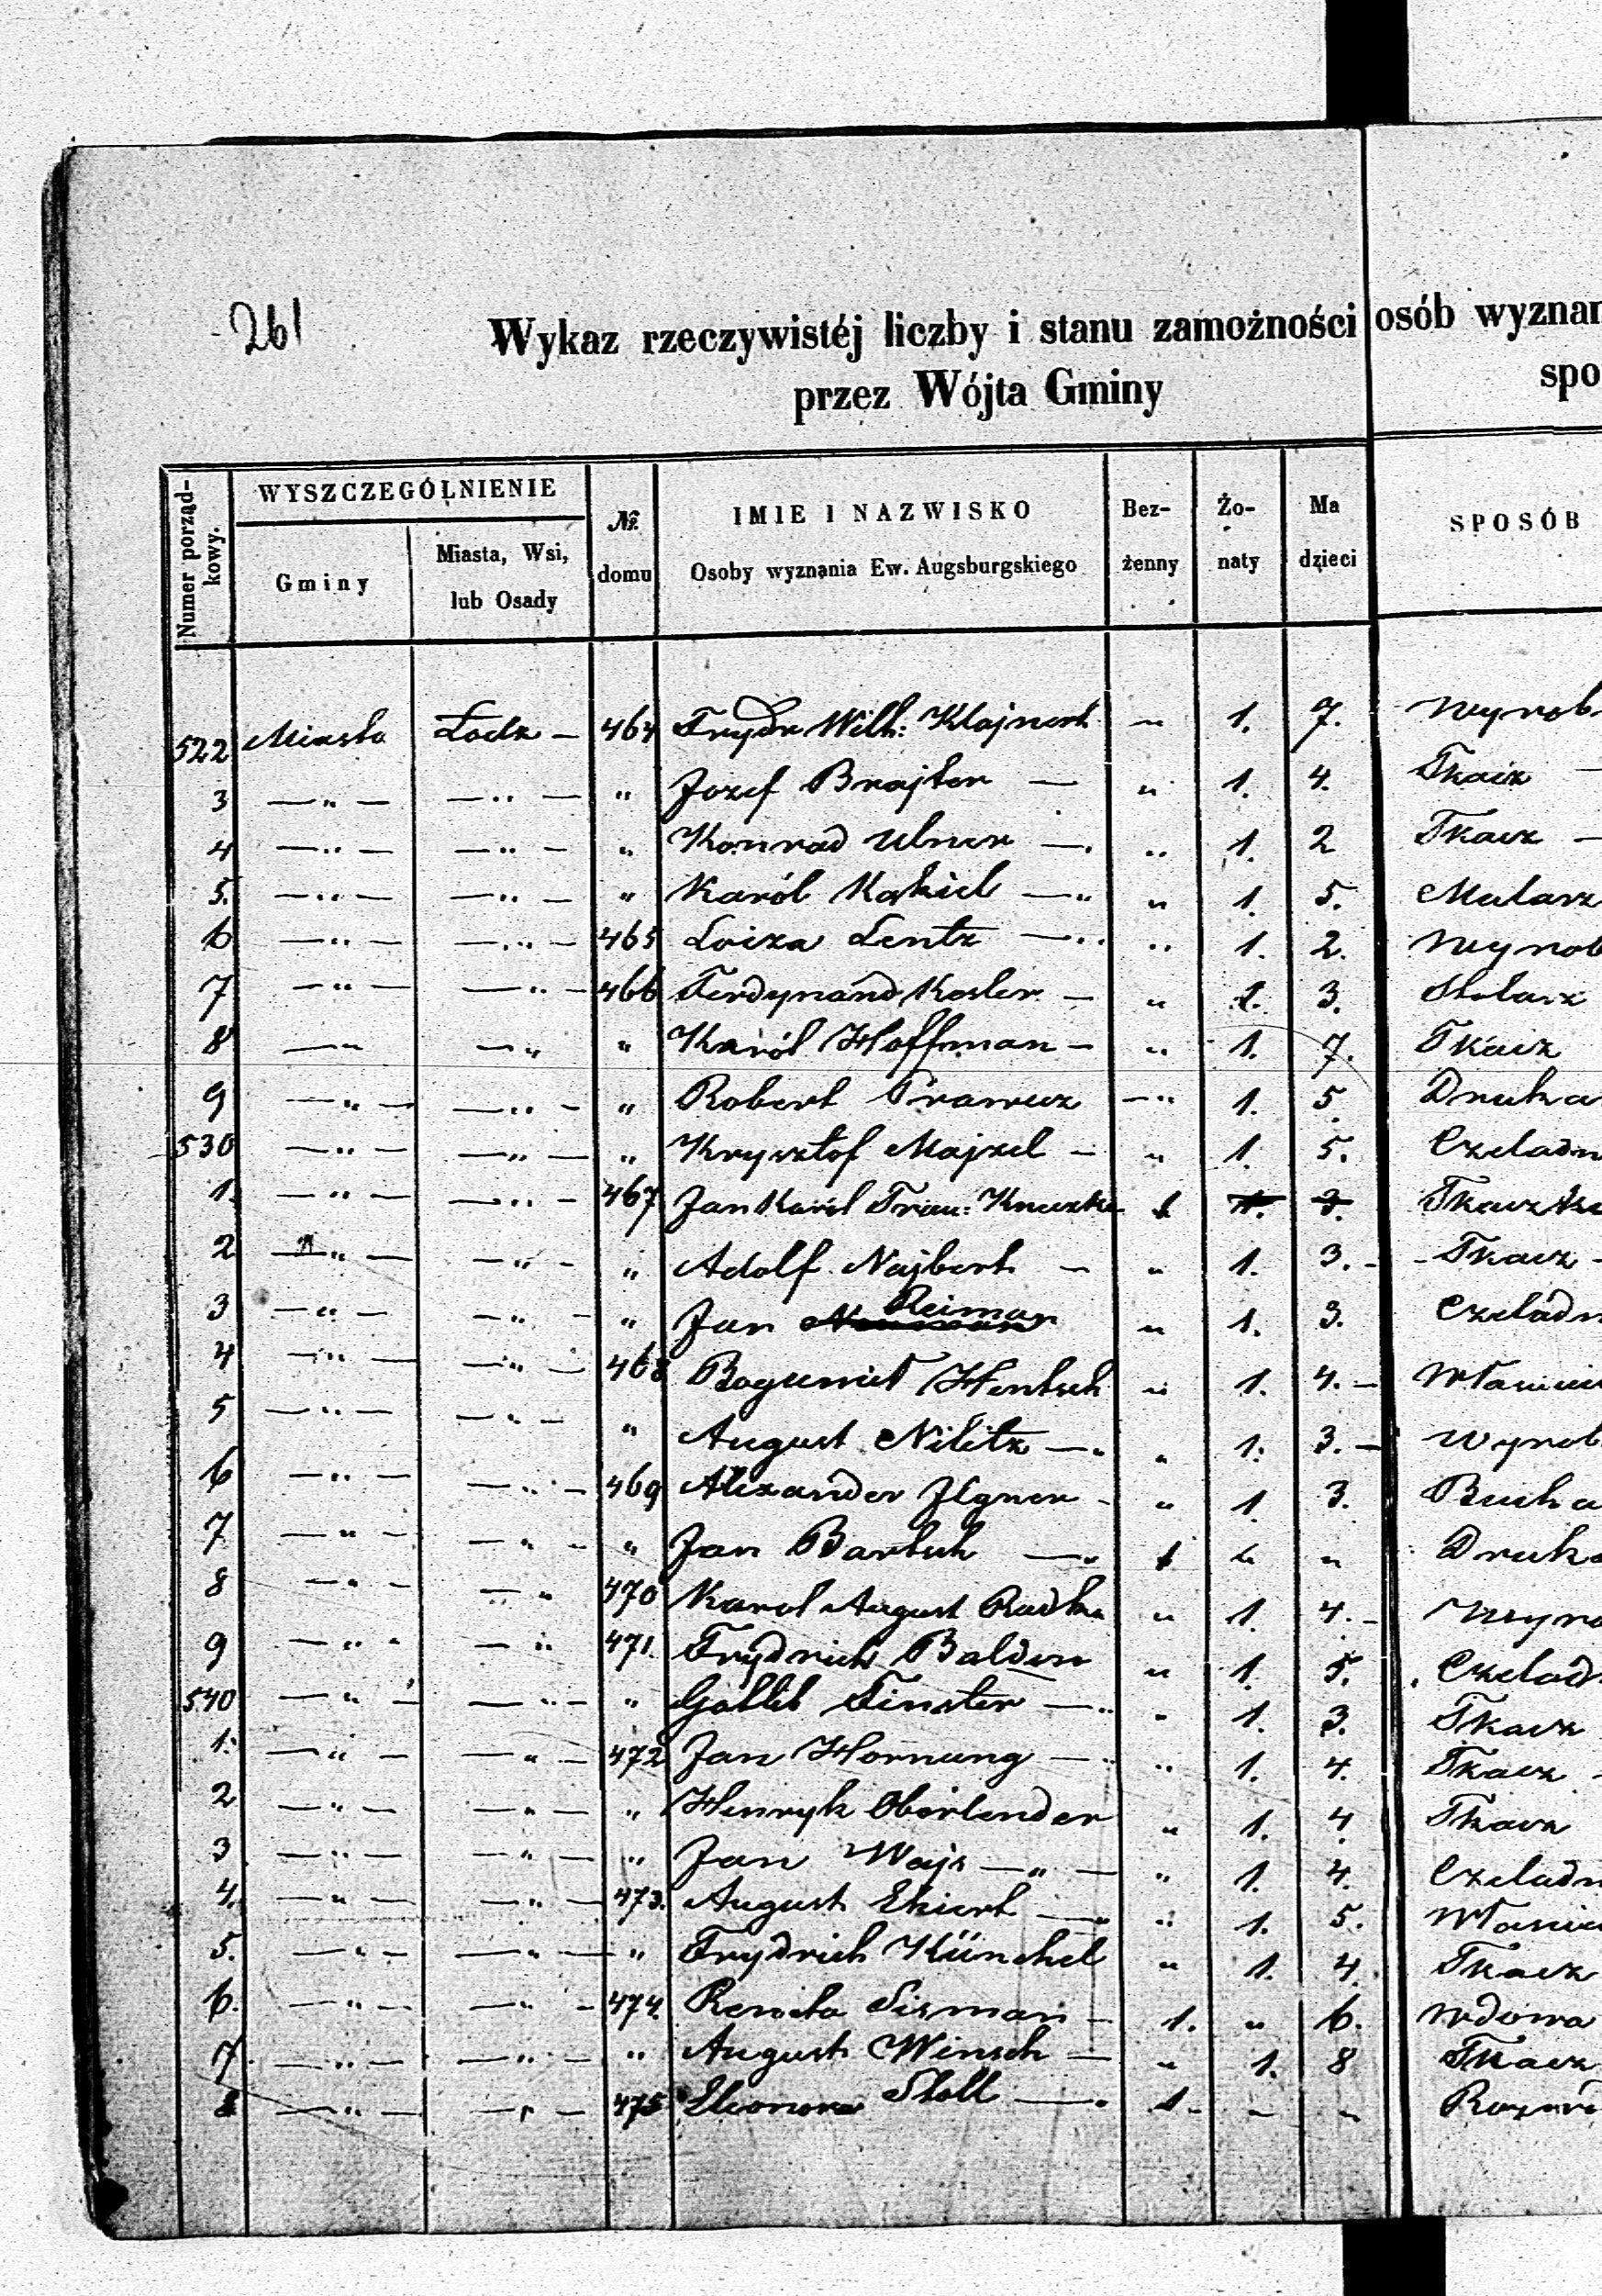 261
Wykaz rzeczywistéj liczby i stanu zamożności osób wyznan
przez Wójta Gminy spo
Numer porządkowy. WYSZCZEGÓLNIENIE Gminy Miasta, Wsi, lub Osady № domu IMIE I NAZWISKO Osoby wyznania Ew. Augsburgskiego Bez-żenny Żo-naty Ma dzieci SPOSÓB
522 Miasto Łodz — 464 Frydr Wilh: Klajnert " 1. 7. Wyrob
3 — " — — " — " Jozef Brajter — " 1. 4. Tkacz —
4 — " — — " — " Konrad Ulner — " 1. 2 Tkacz —
5. — " — — " — " Karól Kąkiel — " " 1. 5. Malarz
6 — " — — " — 465 Loiza Lentz — " " 1. 2. Wyrob
7 — " — — " — 466 Ferdynand Kosler — " 1. 3. Stolarz
8 — " — " " Karól Hoffman — " 1. 7. Tkacz
9 — " — — " — " Robert — " 1. 5. Druka
530 — " — — " — " Krysztof Majzel — " 1. 5. Czeladn
1. — " — — " — 467 Jan Karól Trau: 1 1. 3. Tkacz
2 — " — — " — " Adolf Najbert — " 1. 3. — Tkacz —
3 — " — — " — " Jan Reiman " 1. 3. Czeladn
4 — " — — " — 468 Bogumił Hentsch " 1. 4. — Własci
5 — " — — " — " August Nilitz — " " 1. 3. — Wyrob
6 — " — — " — 469 Alexander Ilgner — " 1. 3. Bucha
7 — " — — " — " Jan Bartsch — " 1 " " Druka
8 — " — — " 470 Karol August Radke " 1. 4. — Wyro
9 — " — — " 471. Frydrich Balden " 1. 5. Czeladn
540 — " — — " — " Gottlib Finster — " " 1. 3. Tkacz
1. — " — — " — 472 Jan Hornung — " " 1. 4. Tkacz —
2 — " — — " — " Henryk Oberlender " 1. 4. Tkacz
3 — " — — " — " Jan Wajs — " — " 1. 4. Czeladn
4. — " — — " — 473. August Ekiert — " " 1. 5. Własci
5. — " — — " — " Frydrich Künchel " 1. 4. Tkacz
6. — " — — " — 474. Renata Sisman — 1. " 6. Wdowa
7. — " — — " — " August Winsch — " 1. 8 Tkacz
8 — " — — " — 475 Eleonora Stoll — 1. — "